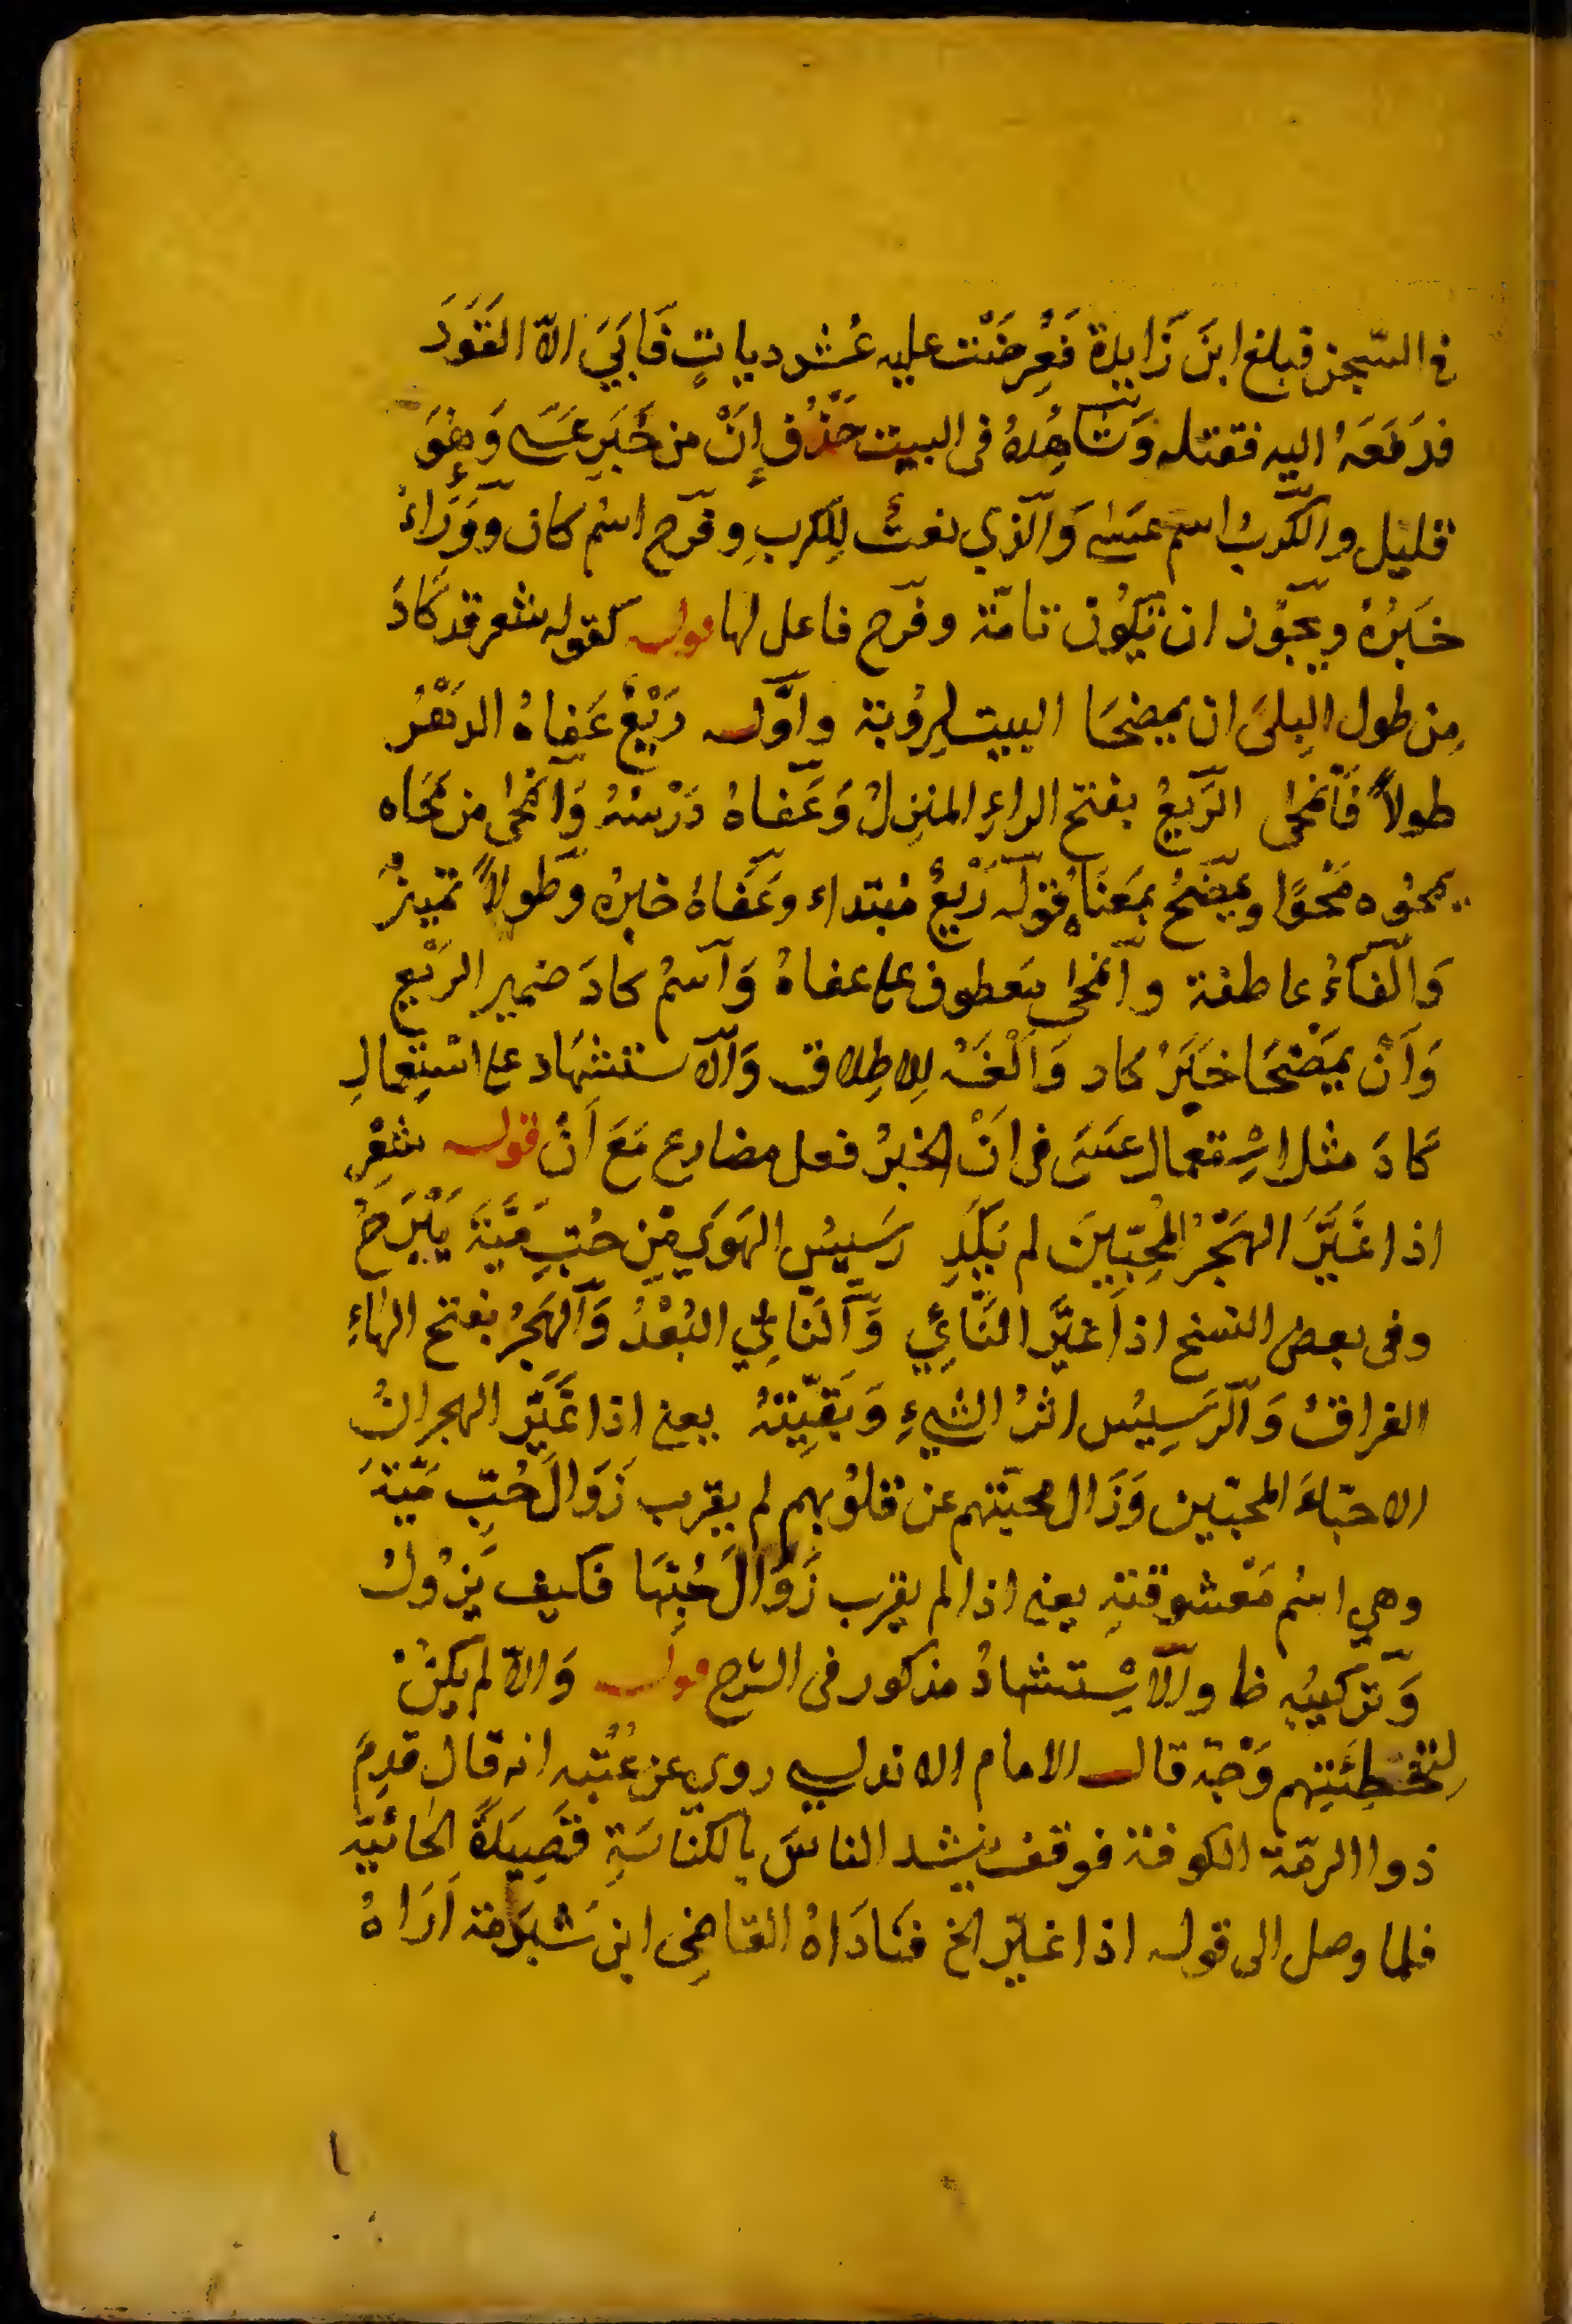 في السّجن فبلغ ابنَ زَايدة فعُرِضَتْ عليه عُشر دياتٍ فَابَيَ الّا القَوَدَ
فدَفَعَهُ اليه فقتله وَشاهِدُهُ فى البيت حَذْف اِنَّ من خَبَرِ عَسَى وَهُوَ
قليل والكَربُ اسم عَسَىٰ وَالّذي نعتٌ لِلكربِ وفرَج اسْم كان وَوَرَاءَهُ
خَبَرُهُ ويجُوز ان تَكُون تامّة وفرَج فاعل لها قوله كقوله شعر قد كَادَ
مِن طول البِلىَ ان يمضحَا البيت لِرُوبة واوَّله رَبْعٌ عَفاهُ الدَهْرُ
طولاً فَانمحٰى الرَبعُ بفتح الراءِ المنزِلُ وَعَفاهُ دَرْسَهُ وَانمحٰى من مَحَاه
يمحُوه مَحوًا ويمضَحُ بمَعنَاهُ قولَه رَبْعٌ مبتداء وعَفَاهُ خبرُه وطَولاً تميزٌ
وَالفَاءُ عاطفة وانمحٰى معطوف على عفاهُ وَاسْمُ كادَ ضمير الرَبْع
وَاَنْ يمَضْحَا خَبَرُ كاد وَاَلْفَهُ لِلاِطِلاق وَالاستشهَاد على استِعمالِ
كَادَ مثل اسْتعمال عَسَىَ فى اَنّ الخبرُ فعل مضارع مَعَ اَنْ قوله شعْر
اذا غَيَّرَ الهَجْرُ المُحِبّيِنَ لم يَكَدِ رَسَيِسُ الهَوَي مِن حُبِّ مَيَّةَ يَبْرَحُ
وفى بعض النسخ اذا غيَّر النَّائِي وَالنَّائِي البُعْدُ وَالهَجرُ بفتح الهَاءِ
الفراقُ وَالرَسِيسُ اثرُ الشيءِ وَبَقِيَّتهُ يعنى اذا غَيَّر الهجرانُ
الاحبّاءَ المحبّين وَزَال محبّتهم عن قلوُبهم لم يقرب زَوَال حُبِّ مَيّةَ
وهي اسْم مَعْشوقتهِ يعنى اذا لم يقرب زَوَالَ حُبّهَا فكيف يَزُولُ
وَتركيبُه ظا والاسْتشهادُ مذكور فى الشرح قوله وَالّا لم يكنْ
لِتخطِئَتِهم وَجْهٌ قال الامام الاندلسي روي عن عُتْبه انه قال قدِمَ
ذوا الرمّة الكوفة فوقف ينشد الناسَ بالكنَاسَةِ قصِيدَةً الحَائيّه
فلما وصل الى قوله اذا غيّر الخ فنَادَاهُ القاضِى ابن شبرَمة اَرَاهُ